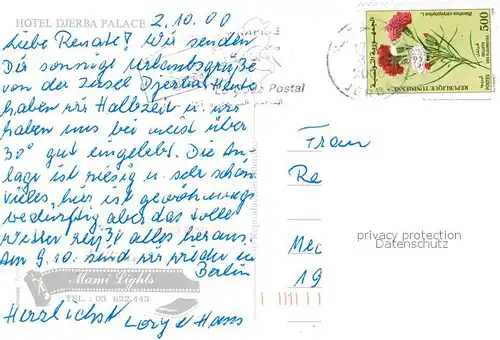 HOTEL DJERBA PALACE
2.10.00
Liebe Renate! Wir senden
Dir sonnige Urlaubsgrüße
von der Insel Djerba. Heute
haben wir Halbzeit u. wir
haben uns bei meist über
30° gut eingelebt. Die An-
lage ist riesig u. sehr schön
vieles hier ist gewöhnungs-
bedürftig aber das tolle
Wetter reißt alles heraus.
Am 9.10. sind wir wieder in
Berlin
Mami Lights
TEL.: 05 622.443
Herzlichst Lory u Hans
Postal
Dianthus caryophyllus L.
500
REPUBLIQUE TUNISIENNE
Frau
Re
privacy protection
Datenschutz
19